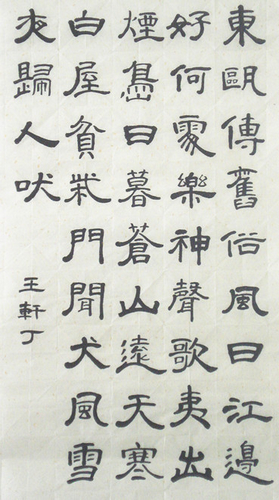 東甌傳舊俗風日江邊
好何處樂神聲歌夷出
煙島日暮蒼山遠天寒
白屋貧柴門聞犬風雪
夜歸人吠
王軒丁